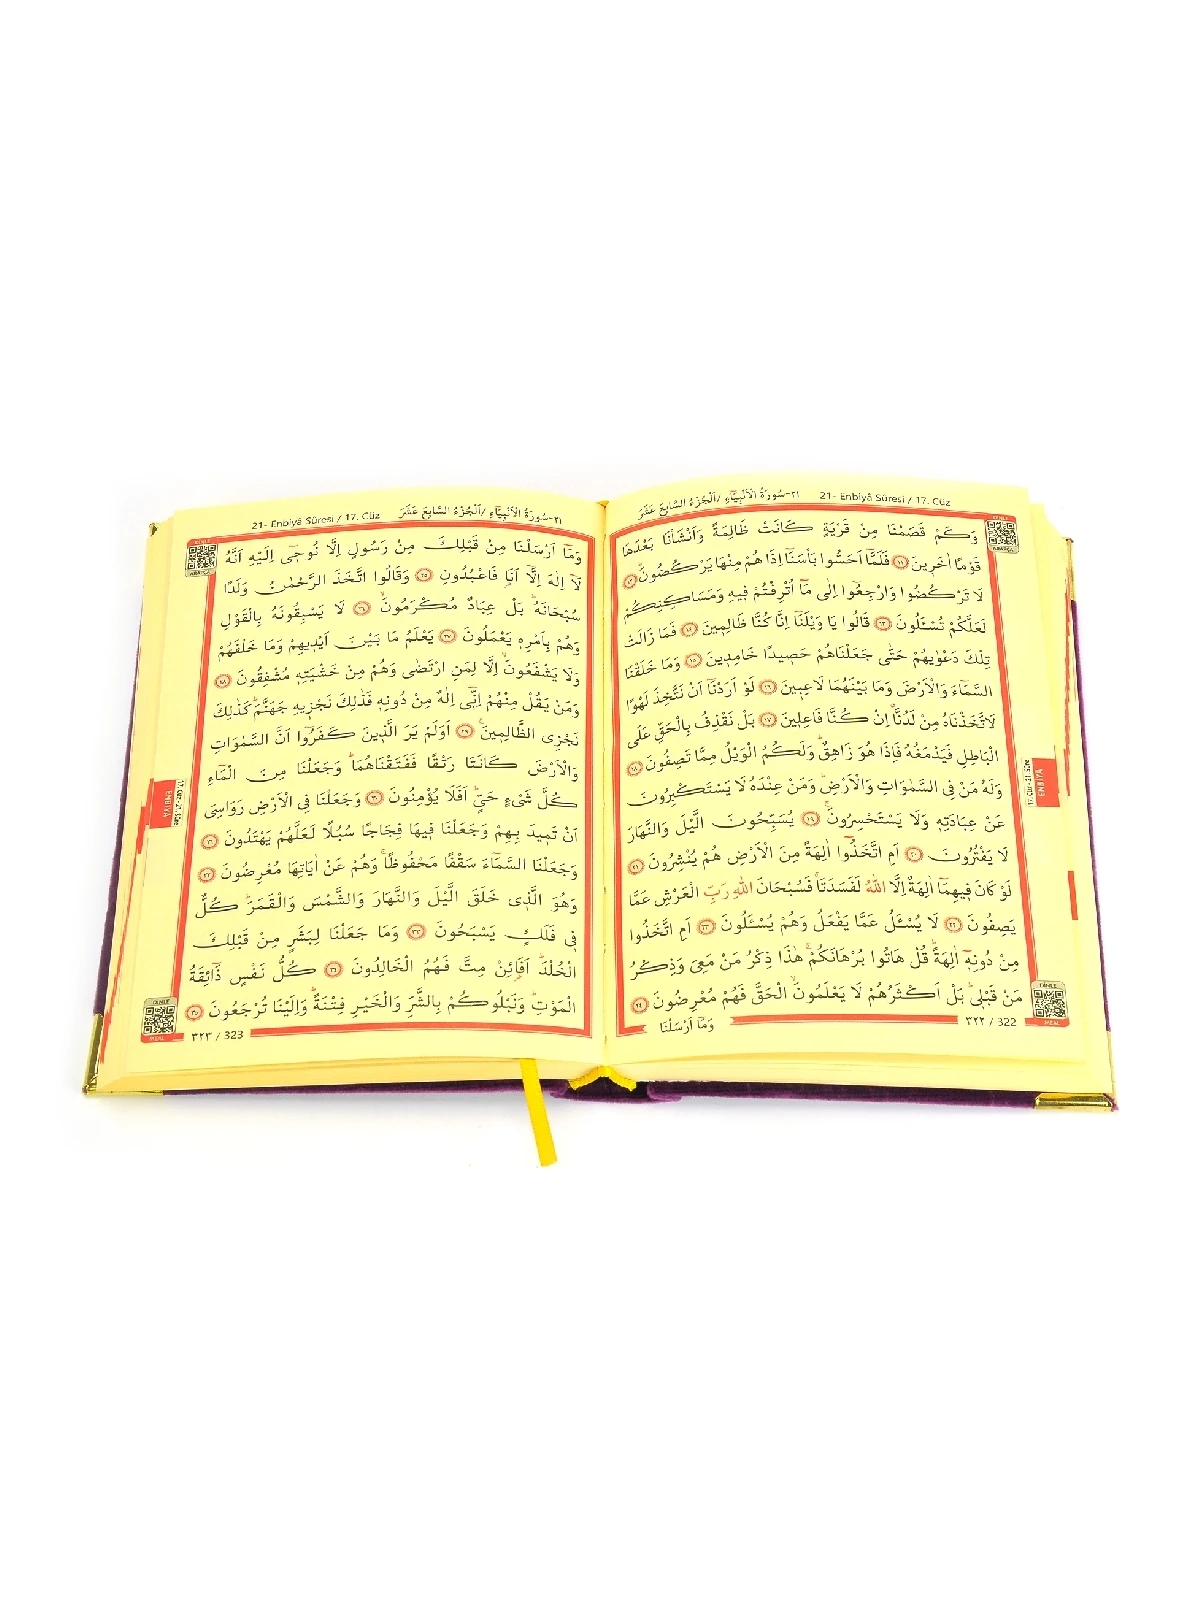 ٢١-سُورَةُ الْاَنْبِيَٓاءِ /اَلْجُزْءُ السَّابِعَ عَشَرَ 21- Enbiyâ Sûresi / 17. Cüz
وَكَمْ قَصَمْنَا مِنْ قَرْيَةٍ كَانَتْ ظَالِمَةً وَاَنْشَأْنَا بَعْدَهَا
قَوْمًا اٰخَرِينَ ﴿١١﴾ فَلَمَّٓا اَحَسُّوا بَأْسَنَٓا اِذَا هُمْ مِنْهَا يَرْكُضُونَۜ ﴿١٢﴾
لَا تَرْكُضُوا وَارْجِعُٓوا اِلٰى مَٓا اُتْرِفْتُمْ فِيهِ وَمَسَاكِنِكُمْ
لَعَلَّكُمْ تُسْـَٔلُونَ ﴿١٣﴾ قَالُوا يَا وَيْلَنَٓا اِنَّا كُنَّا ظَالِمِينَ ﴿١٤﴾ فَمَا زَالَتْ
تِلْكَ دَعْوٰيهُمْ حَتّٰى جَعَلْنَاهُمْ حَصِيدًا خَامِدِينَ ﴿١٥﴾ وَمَا خَلَقْنَا
السَّمَٓاءَ وَالْاَرْضَ وَمَا بَيْنَهُمَا لَاعِبِينَ ﴿١٦﴾ لَوْ اَرَدْنَٓا اَنْ نَتَّخِذَ لَهْوًا
لَاتَّخَذْنَاهُ مِنْ لَدُنَّاۗ اِنْ كُنَّا فَاعِلِينَ ﴿١٧﴾ بَلْ نَقْذِفُ بِالْحَقِّ عَلَى
الْبَاطِلِ فَيَدْمَغُهُ فَاِذَا هُوَ زَاهِقٌۜ وَلَكُمُ الْوَيْلُ مِمَّا تَصِفُونَ ﴿١٨﴾
وَلَهُ مَنْ فِي السَّمٰوَاتِ وَالْاَرْضِۜ وَمَنْ عِنْدَهُ لَا يَسْتَكْبِرُونَ
عَنْ عِبَادَتِهِ وَلَا يَسْتَحْسِرُونَۚ ﴿١٩﴾ يُسَبِّحُونَ الَّيْلَ وَالنَّهَارَ
لَا يَفْتُرُونَ ﴿٢٠﴾ اَمِ اتَّخَذُٓوا اٰلِهَةً مِنَ الْاَرْضِ هُمْ يُنْشِرُونَ ﴿٢١﴾
لَوْ كَانَ فِيهِمَٓا اٰلِهَةٌ اِلَّا اللّٰهُ لَفَسَدَتَاۚ فَسُبْحَانَ اللّٰهِ رَبِّ الْعَرْشِ عَمَّا
يَصِفُونَ ﴿٢٢﴾ لَا يُسْـَٔلُ عَمَّا يَفْعَلُ وَهُمْ يُسْـَٔلُونَ ﴿٢٣﴾ اَمِ اتَّخَذُوا
مِنْ دُونِهِٓ اٰلِهَةًۜ قُلْ هَاتُوا بُرْهَانَكُمْۚ هٰذَا ذِكْرُ مَنْ مَعِيَ وَذِكْرُ
مَنْ قَبْلِيۜ بَلْ اَكْثَرُهُمْ لَا يَعْلَمُونَۙ الْحَقَّ فَهُمْ مُعْرِضُونَ ﴿٢٤﴾
وَمَٓا اَرْسَلْنَا
٣٢٢ / 322
DİNLE
MEAL
ENBİYÂ
٢١-سُورَةُ الْاَنْبِيَٓاءِ /اَلْجُزْءُ السَّابِعَ عَشَرَ 21- Enbiyâ Sûresi / 17. Cüz
وَمَٓا اَرْسَلْنَا مِنْ قَبْلِكَ مِنْ رَسُولٍ اِلَّا نُوحِٓي اِلَيْهِ اَنَّهُ
لَٓا اِلٰهَ اِلَّٓا اَنَا۬ فَاعْبُدُونِ ﴿٢٥﴾ وَقَالُوا اتَّخَذَ الرَّحْمٰنُ وَلَدًا
سُبْحَانَهُۜ بَلْ عِبَادٌ مُكْرَمُونَۙ ﴿٢٦﴾ لَا يَسْبِقُونَهُ بِالْقَوْلِ
وَهُمْ بِاَمْرِهِ يَعْمَلُونَ ﴿٢٧﴾ يَعْلَمُ مَا بَيْنَ اَيْدِيهِمْ وَمَا خَلْفَهُمْ
وَلَا يَشْفَعُونَۙ اِلَّا لِمَنِ ارْتَضٰى وَهُمْ مِنْ خَشْيَتِهِ مُشْفِقُونَ ﴿٢٨﴾
وَمَنْ يَقُلْ مِنْهُمْ اِنِّٓي اِلٰهٌ مِنْ دُونِهِ فَذٰلِكَ نَجْزِيهِ جَهَنَّمَۜ كَذٰلِكَ
نَجْزِي الظَّالِمِينَ۟ ﴿٢٩﴾ اَوَلَمْ يَرَ الَّذِينَ كَفَرُٓوا اَنَّ السَّمٰوَاتِ
وَالْاَرْضَ كَانَتَا رَتْقًا فَفَتَقْنَاهُمَاۜ وَجَعَلْنَا مِنَ الْمَٓاءِ
كُلَّ شَيْءٍ حَيٍّۜ اَفَلَا يُؤْمِنُونَ ﴿٣٠﴾ وَجَعَلْنَا فِي الْاَرْضِ رَوَاسِيَ
اَنْ تَمِيدَ بِهِمْ وَجَعَلْنَا فِيهَا فِجَاجًا سُبُلًا لَعَلَّهُمْ يَهْتَدُونَ ﴿٣١﴾
وَجَعَلْنَا السَّمَٓاءَ سَقْفًا مَحْفُوظًاۚ وَهُمْ عَنْ اٰيَاتِهَا مُعْرِضُونَ ﴿٣٢﴾
وَهُوَ الَّذِي خَلَقَ الَّيْلَ وَالنَّهَارَ وَالشَّمْسَ وَالْقَمَرَۜ كُلٌّ
فِي فَلَكٍ يَسْبَحُونَ ﴿٣٣﴾ وَمَا جَعَلْنَا لِبَشَرٍ مِنْ قَبْلِكَ
الْخُلْدَۜ اَفَا۬ئِنْ مِتَّ فَهُمُ الْخَالِدُونَ ﴿٣٤﴾ كُلُّ نَفْسٍ ذَٓائِقَةُ
الْمَوْتِۜ وَنَبْلُوكُمْ بِالشَّرِّ وَالْخَيْرِ فِتْنَةًۜ وَاِلَيْنَا تُرْجَعُونَ ﴿٣٥﴾
٣٢٣ / 323
DİNLE
MEAL
ENBİYÂ